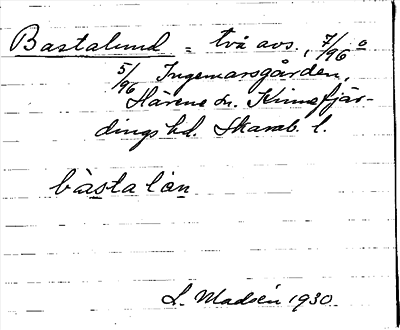 Bastalund = två avs., 7/96 o
5/96 Ingemarsgården,
Härene sn. Kinnefjär-
dings hd. Skarab. l.
bàsta lƏn
L. Madsén 1930.